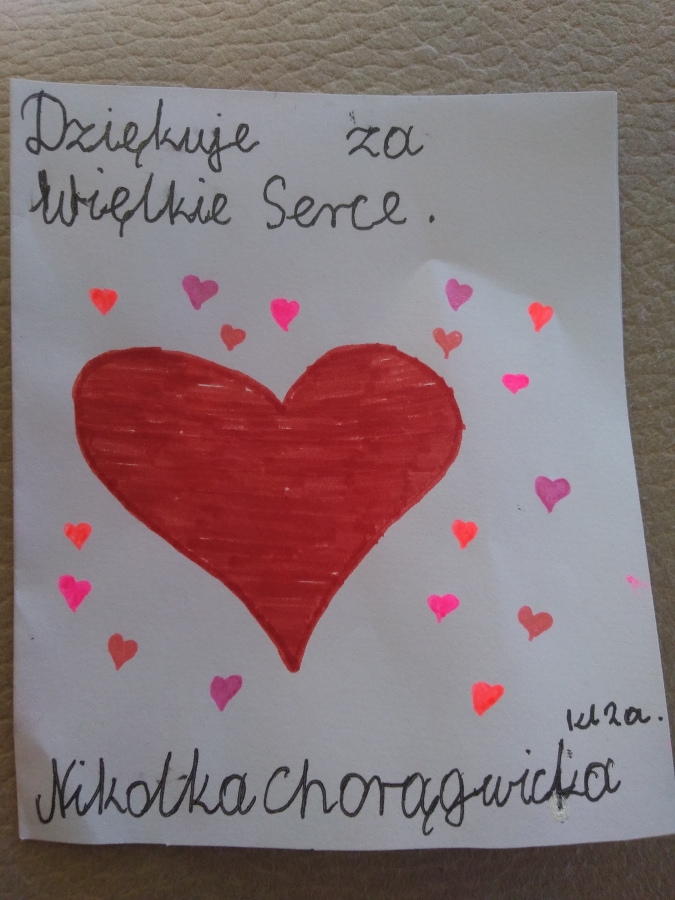 Dziękuje za
Wielkie Serce.
kl 2a.
Nikolka Chorągwicka